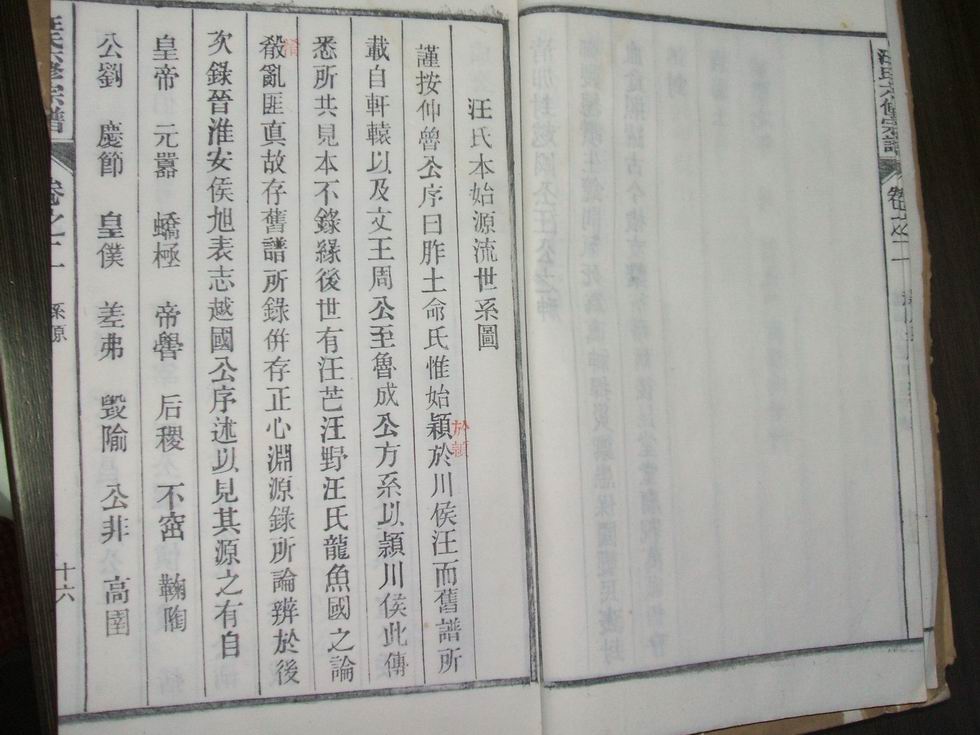 汪氏六修宗譜
卷之二
汪氏本始源流世系圖
謹按仲魯公序曰胙土命氏惟始頴於川侯汪而舊譜所
於頴
載自軒轅以及文王周公至魯成公方系以頴川侯此傳
悉所共見本不錄緣後世有汪芒汪野汪氏龍魚國之論
殽亂匪真故存舊譜所錄倂存正心淵源錄所論辨於後
淆
次錄晉淮安侯旭表志越國公序述以見其源之有自
皇帝 元囂 蟜極 帝嚳 后稷 不窋 鞠陶
公劉 慶節 皇僕 差弗 毀隃 公非 高圉
汪氏六修宗譜
卷之二
系原
十六